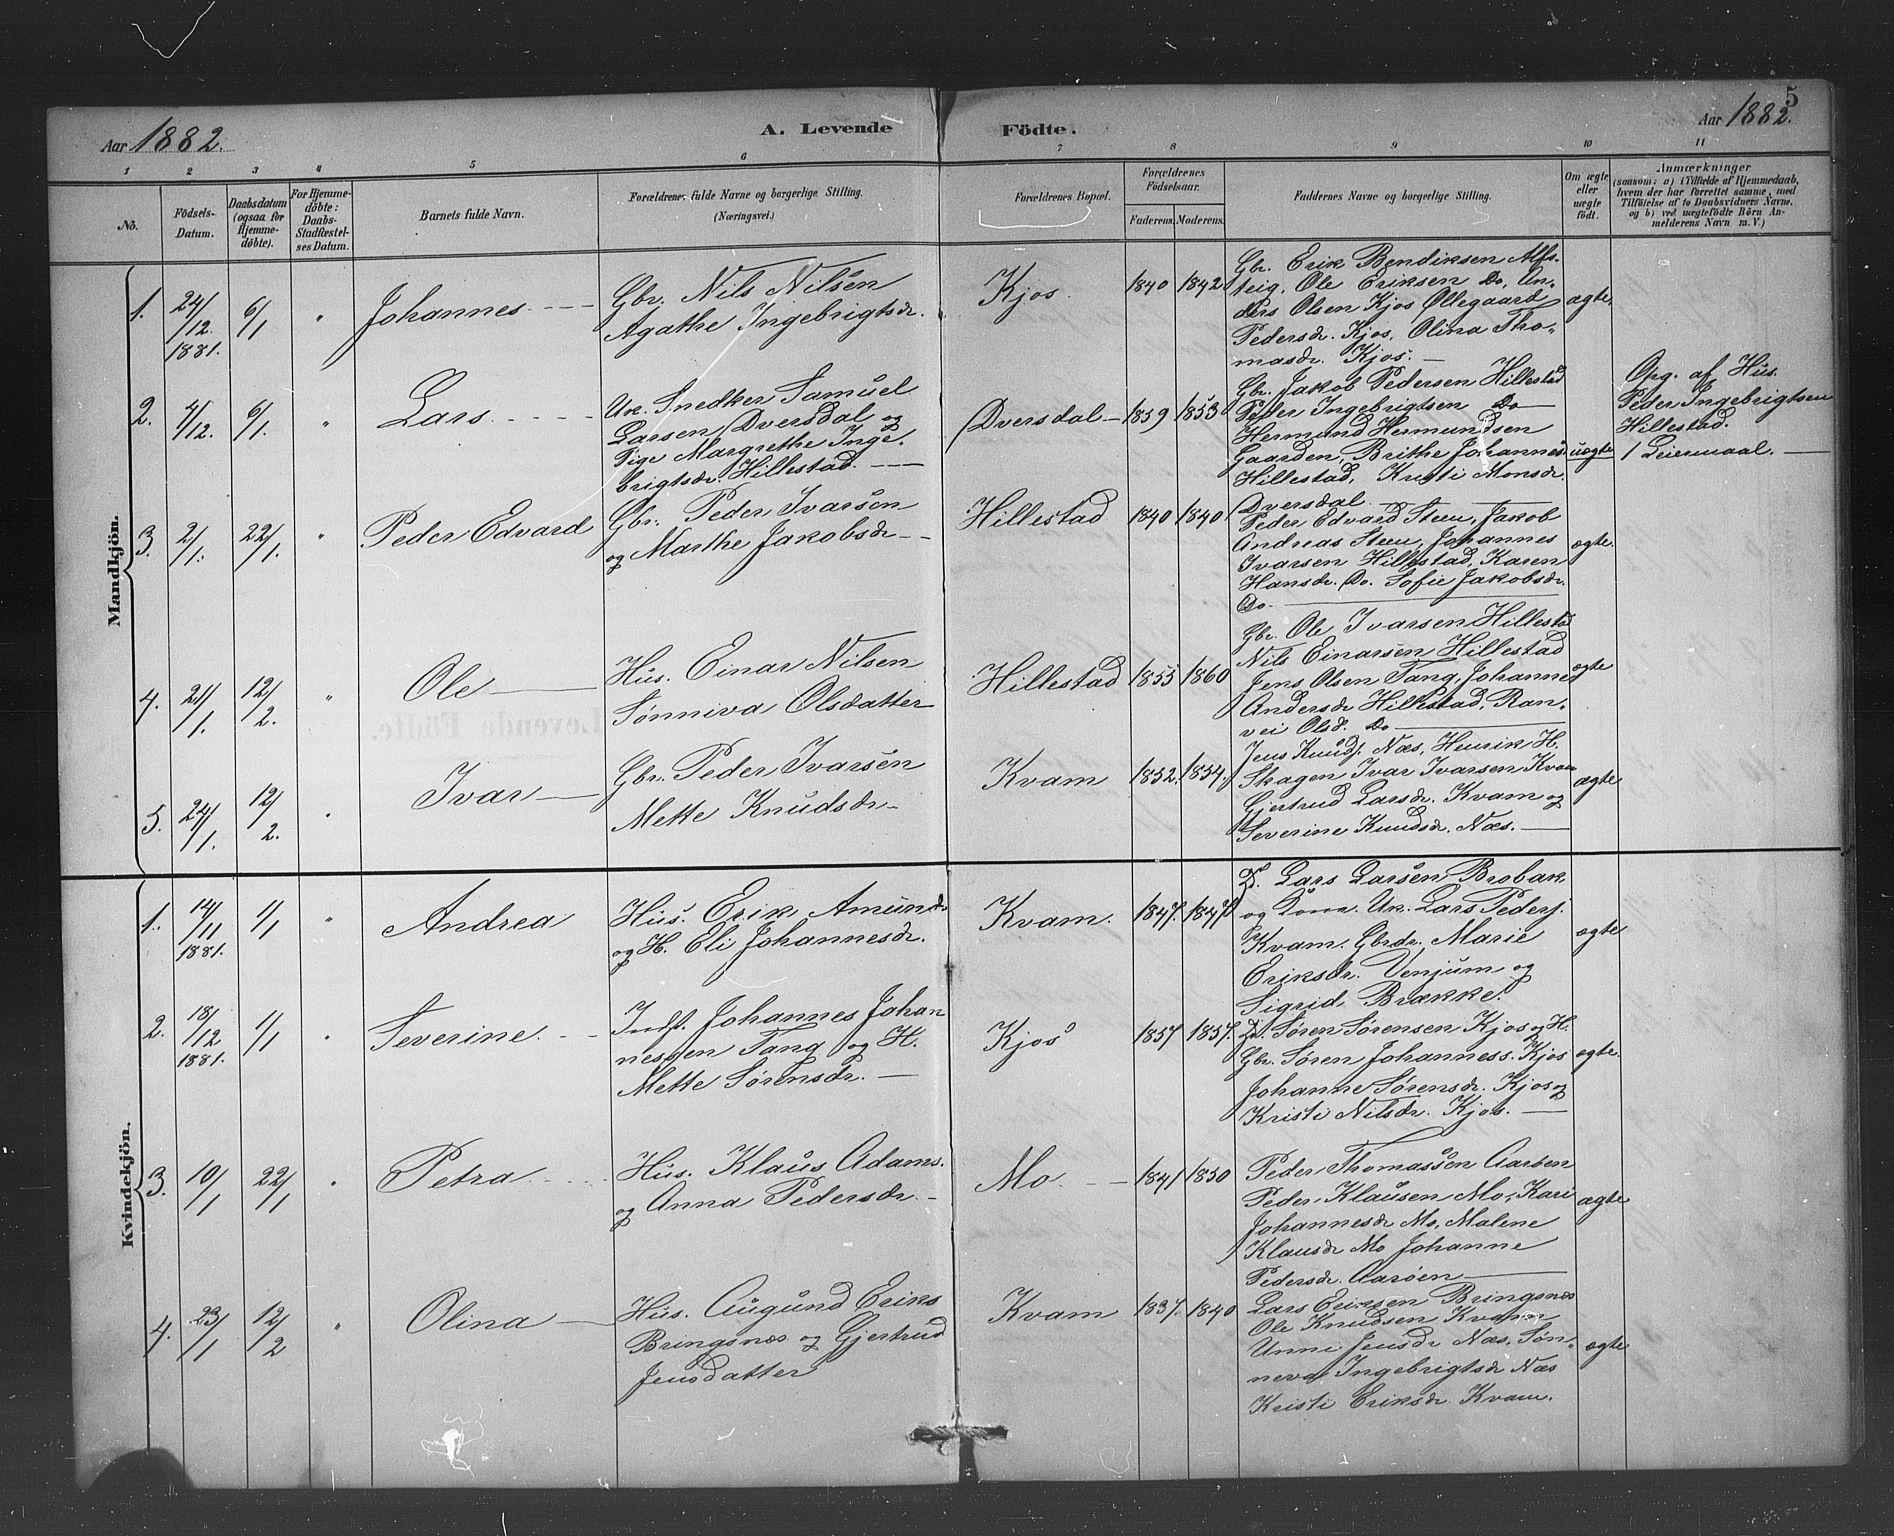 5
Aar 1882.
A. Levende Födte.
Aar 1882.
1 2 3 4 5 6 7 8 9 10 11
No.
Födsels-
Datum.
Daabsdatum
(ogsaa for
Hjemme-
døbte).
For Hjemme-
døbte:
Daabs-
Stadfæstel-
ses Datum.
Barnets fulde Navn.
Forældrenes fulde Navne og borgerlige Stilling.
(Næringsvei.)
Forældrenes Bopæl.
Forældrenes
Födselsaar.
Faderens. Moderens.
Faddernes Navne og borgerlige Stilling.
Om ægte
eller
uægte
født.
Anmærkninger
(saasom: a) i Tilfælde af Hjemmedaab,
hvem der har forrettet samme, med
Tilföielse af to Daabsvidners Navne,
og b) ved uægtefödte Börn An-
melderens Navn m. V.)
Mandkjön.
1.
24/12
1881.
6/1
"
Johannes
Gbr. Nils Nilsen
Agathe Ingebrigtsdr.
Kjos.
1840
1842
Gbr. Erik Bendiksen Alfs-
teig, Ole Eriksen Do, An-
ders Olsen Kjos Øllegaard
Pedersdr. Kjos, Olina Tho-
masdr. Kjos. —
ægte
2.
4/12.
6/1.
"
Lars
Uk. Snedker Samuel
Larsen Dversdal og
Pige Margrethe Inge-
brigtsdr. Hillestad. —
Dversdal —
1859
1853
Gbr. Jakob Pedersen Hillestad
Peder Ingebrigtsen Do —
Hermund Hermundsen
Gaarden, Brithe Johannesd
Hillestad, Kristi Monsdr.
Dversdal.
uægte
Opg. af Hus.
Peder Ingebrigtsen
Hillestad.
1 Leiermaal. —
3.
2/1.
22/1.
"
Peder Edvard
Gbr. Peder Ivarsen
og Marthe Jakobsdr —
Hillestad
1840
1840
Peder Edvard Steen, Jakob
Andreas Steen, Johannes
Ivarsen Hillestad, Karen
Hansdr. Do. Sofie Jakobsdr.
Do —
ægte.
4.
21/1.
12/2.
"
Ole —
Hus. Einar Nilsen
Sønniva Olsdatter
Hillestad
1855
1860
Gbr. Ole Ivarsen Hillestad
Nils Einarsen Hillestad
Jens Olsen Tang, Johanne
Andersdr Hillestad, Ran-
vei Olsd. Do —
ægte
5.
24/1.
12/2.
"
Ivar —
Gbr. Peder Ivarsen
Mette Knudsdr —
Kvam
1852.
1854.
Jens Knuds. Næs, Henrik H.
Skagen Ivar Ivarsen Kvam
Gjertrud Larsdr. Kvam og
Severine Knudsdr. Næs. —
ægte
Kvindekjön.
1.
14/11
1881.
1/1
"
Andrea
Hus. Erik Amunds
og H. Eli Johannesdr.
Kvam.
1847.
1847
Lars Larsen Brobak
og Kone. Uk. Lars Peders.
Kvam. Gbrdr. Marie
Eriksdr. Venjum og
Sigrid Brække.
ægte
2.
18/12
1881.
1/1
"
Severine
Indf. Johannes Johan
nessen Tang og H.
Mette Sørensdr. —
Kjos
1857
1857.
Søren Sørensen Kjos og H.
Gbr. Søren Johanness. Kjos
Johanne Sørensdr. Kjos og
Kristi Nilsdr. Kjos. —
ægte.
3.
10/1
22/1
"
Petra
Hus. Klaus Adams.
og Anna Pedersdr. —
Mo. —
1841
1850
Peder Thomassen Aarøen
Peder Klausen Mo, Kari
Johannesdr Mo, Malene
Klausdr Mo Johanne
Pedersdr. Aarøen —
ægte
4.
23/1
12/2
"
Olina —
Hus. Augund Eriks
Bringsnæs og Gjertrud
Jensdatter
Kvam
1837.
1840
Lars Eriksen Bringsnæs
Ole Knudsen Kvam
Unni Jensdr Næs, Søn-
neva Ingebrigtsdr Næs
Kristi Eriksdr Kvam.
ægte